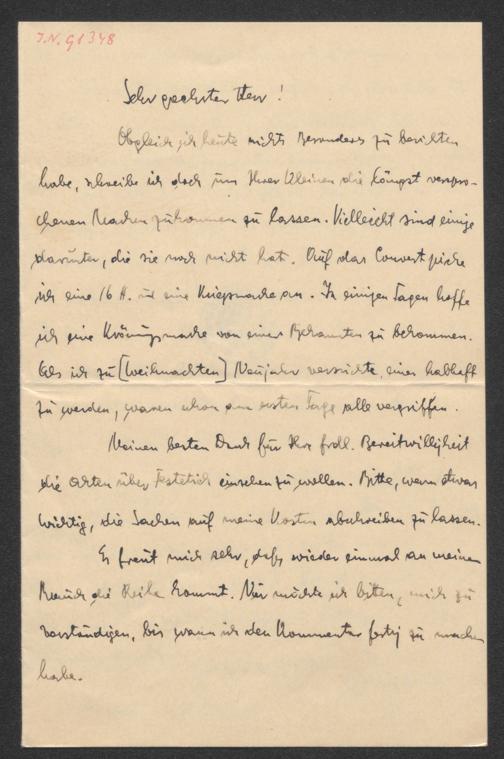 J.N. 91348
Sehr geehrter Herr!
Obgleich ich heute nichts Besonderes zu berichten
habe, schreibe ich doch um Ihrer Kleinen die längst verspro-
chenen Marken zukommen zu lassen. Vielleicht sind einige
darunter, die sie noch nicht hat. Auf das Couvert picke
ich eine 16 H. und eine Kriegsmarke an. In einigen Tagen hoffe
ich eine Krönungsmarke von einem Bekannten zu bekommen.
Als ich zu [Weihnachten] Neujahr versuchte, einer habhaft
zu werden, waren schon am ersten Tage alle vergriffen.
Meinen besten Dank für Ihre frdl. Bereitwilligkeit
die Akten über Festetich einsehen zu wollen. Bitte, wenn etwas
wichtig, die Sachen auf meine Kosten abschreiben zu lassen.
Es freut mich sehr, daß wieder einmal an meinen
die Reihe kommt. Nur möchte ich bitten, mich zu
verständigen, bis wann ich den Kommentar fertig zu machen
habe.